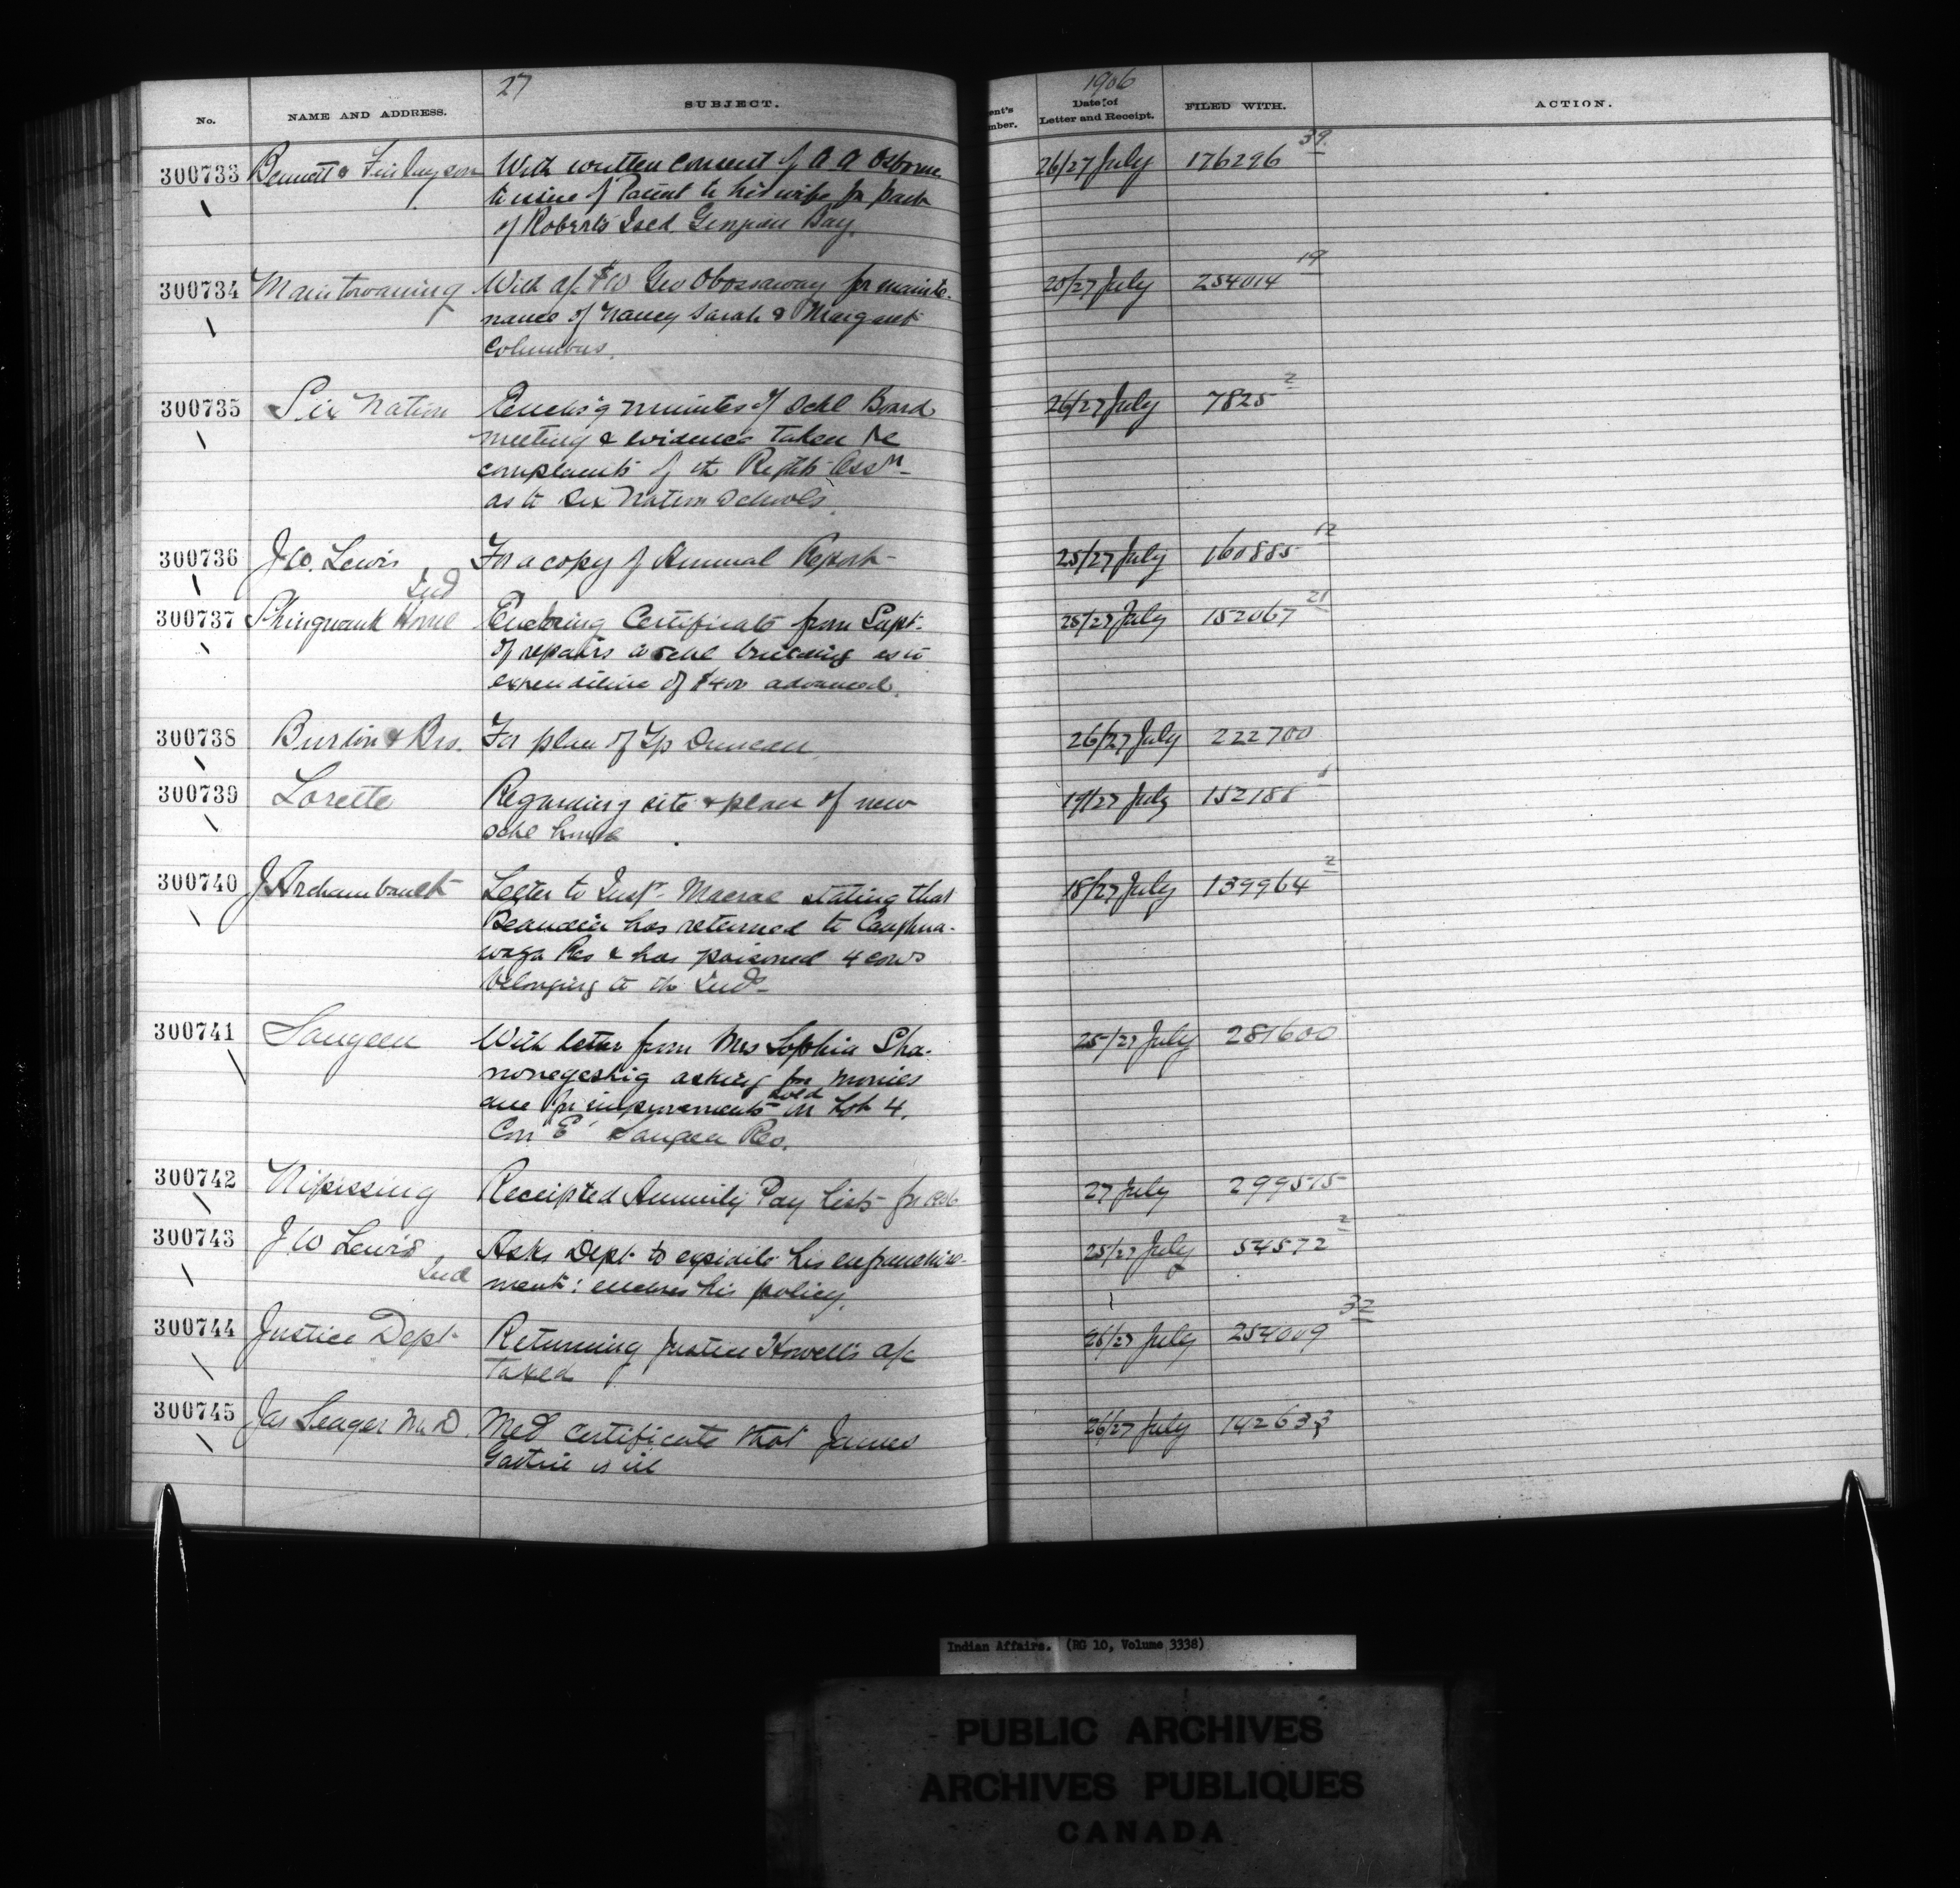 27
1906
No. NAME AND ADDRESS. SUBJECT. ent's mber. Date of Letter and Receipt. FILED WITH. ACTION.
300733 Bennett & Finlayson With written consent of A A Osborne 26/27 July 176296 39
to issue of Patent to his wife for part
of Roberts Isld. Georgian Bay.
300734 Manitowaning With a/c $10 Geo Obossaway for mainte- 25/27 July 254014 19
nance of Nancy Sarah & Margaret
Columbus.
300735 Six Nation Enclos'g minutes of Schl Board 26/27 July 7825 2
meeting & evidence taken re
complaints of the Rights Assn
as to Six Nation Schools.
300736 J W. Lewis For a copy of Annual Report 25/27 July 160885 12
Ind
300737 Shingwauk Home Enclosing Certificate from Supt. 25/27 July 152067 21
of repairs to schl building as to
expenditure of $400 advanced.
300738 Burton & Bro. For plan of Tp Duncan 26/27 July 222700
300739 Lorette Regarding site & plan of new 19/27 July 152188 1
schl house
300740 J Archambault Letter to Insp. Macrae stating that 18/27 July 139964 2
has returned to Caughna-
waga Res & has poisoned 4 cows
belonging to the Inds
300741 Saugeen With letter from Mrs Sophia Sha- 25/27 July 281600
nonegeshig asking for monies
due for improvements sold on Lot 4.
Con "E" Saugeen Res.
300742 Nipissing Receipted Annuity Pay Lists for 1906 27 July 299575
300743 J W Lewis Asks Dept to expidite his enfranchise- 25/27 July 54572 2
Ind ment: encloses his policy.
300744 Justice Dept Returning Justice Howell's a/c 26/27 July 254009 32
Taxed
300745 Jas Seager M.D. Med certificate that James 26/27 July 142633
is ill
Indian Affairs. (RG 10, Volume 3338)
PUBLIC ARCHIVES
ARCHIVES PUBLIQUES
CANADA